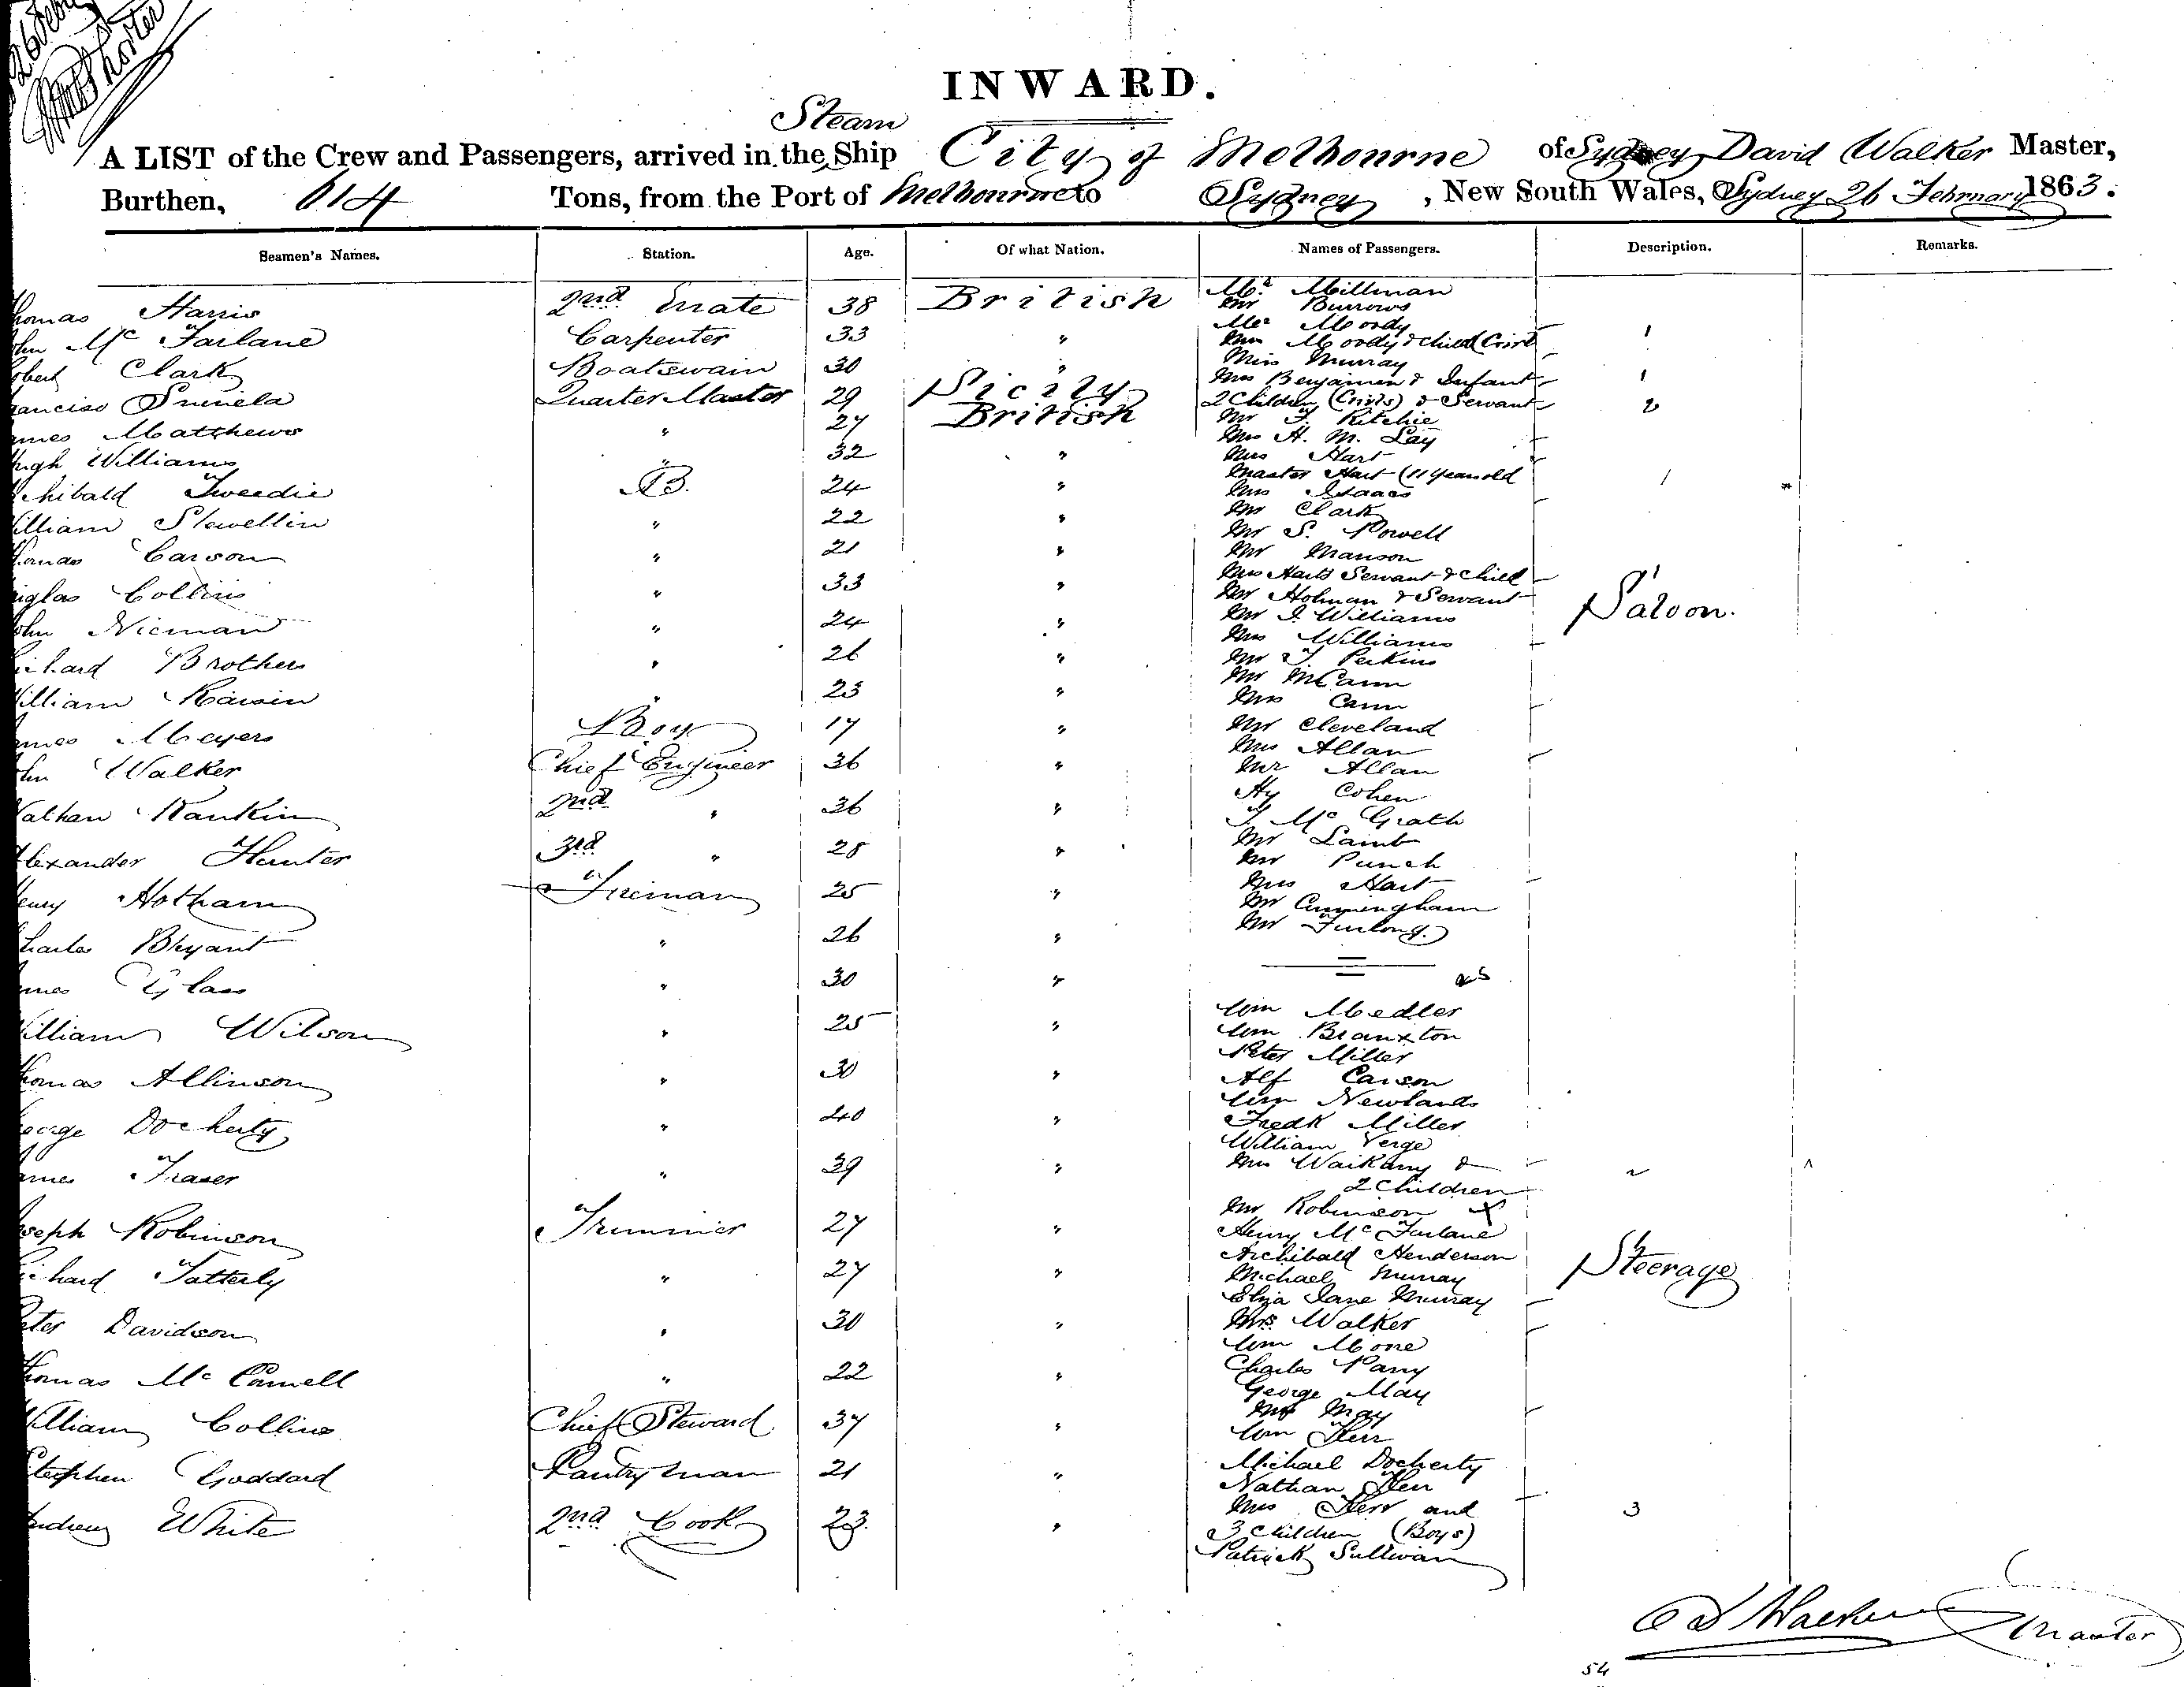 26 Feby
INWARD.
Steam
A LIST of the Crew and Passengers, arrived in the Ship City of Melbourne of Sydney David Walker Master,
Burthen, 614 Tons, from the Port of Melbourne to Sydney, New South Wales, Sydney 26 February 1863.
Seamen's Names. Station. Age. Of what Nation. Names of Passengers. Description. Remarks.
homas Harris 2nd Mate 38 British
ohn Mc Farlane Carpenter 33 "
obert Clark Boatswain 30 "
rancisco Quarter Master 29 Sicily
ames Matthews " 27 British
ugh Williams " 32 "
chibald Tweedie AB. 24 "
illiam Slewellin " 22 "
homas Carson " 21 "
uglas Collins " 33 "
ohn Nieman " 24 "
ichard Brothers " 26 "
illiam " 23 "
ames Meyers Boy 17 "
ohn Walker Chief Engineer 36 "
Nathan Rankin 2nd " 36 "
lexander Hunter 3rd " 28 "
enry Hotham Fireman 25 "
harles Bryant " 26 "
ames Glass " 30 "
illiam Wilson " 25 "
homas Allinson " 30 "
eorge Docherty " 40 "
ames Fraser " 39 "
oseph Robinson Trimmer 27 "
ichard Tatterly " 27 "
eter Davidson " 30 "
homas Mc Connell " 22 "
illiam Collins Chief Steward 37 "
Stephen Goddard Pantryman 21 "
ndrew White 2nd Cook 23. "
Mr Millman
Mr Burrows
Mr Moody
Mrs Moody & child (Girl 1
Miss Murray
Mrs Benjamin & Infant 1
2 Children (Girls) & Servant 2
Mr F. Ritchie
Mrs H. M. Lay
Mrs Hart
Master Hart (11 years old 1
Mrs Isaacs
Mr Clark
Mr S. Powell
Mr Manson
Mrs Harts Servant & Child 1
Mr Holman & Servant
Saloon.
Mr J. Williams
Mrs Williams
Mr J. Perkins
Mr McCann
Mrs Cann
Mr Cleveland
Mrs Allan
Mr Allan
Hy Cohen
J. Mc Grath
Mr Lamb
Mr Punch
Mrs Hart
Mr Cunningham
Mr Furlong.
Wm Medler
Wm Branxton
Peter Miller
Alf Carson
Wm Newlands
Fredk Miller
William Verge
Mrs Waikany & 2
2 Children
Mr Robinson X
Henry Mc Farlane
Archibald Henderson
Steerage
Michael Murray
Eliza Jane Murray
Mrs Walker
Wm Mone
Charles Parry
George May
Mrs May
Wm Kerr
Michael Docherty
Nathan Kerr
Mrs Kerr and 3
3 Children (Boys)
Patrick Sullivan
D Walker Master
54